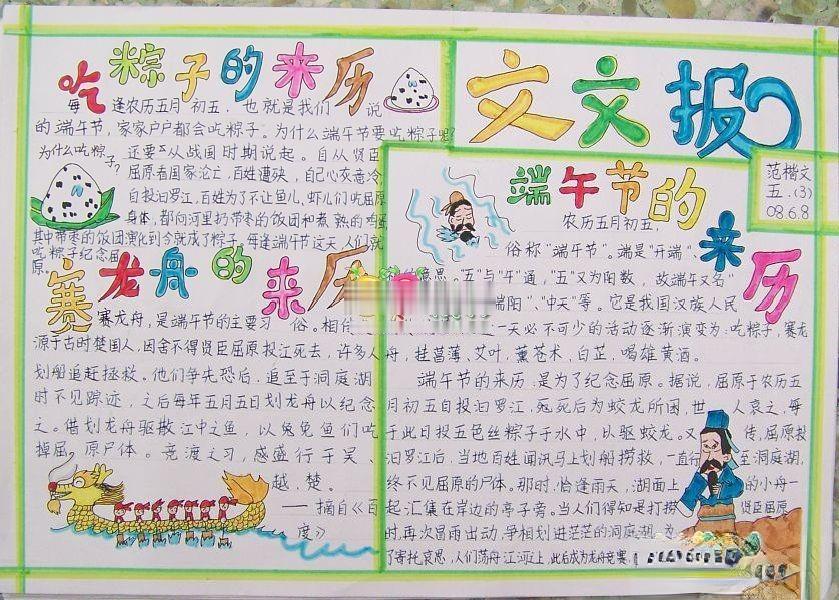 文文报
范楷文
五.(3)
08.6.8
吃粽子的来历
每 逢农历五月 初五,也就是我们 说
的端午节,家家户户都会吃粽子。为什么端午节要吃粽子呢?
为什么吃粽子? 还要 从战国时期说起。自从贤臣
屈原看国家沦亡,百姓遭殃,自己心灰意冷,
自投汨罗江,百姓为了不让鱼儿、虾儿们吃屈原
身体,都向河里扔带枣的饭团和煮熟的鸡蛋
其中带枣的饭团演化到今就成了粽子。每逢端午节这天,人们就
吃粽子纪念屈
原。
赛龙舟的来历
赛龙舟,是端午节的主要习 俗。相传
源于古时楚国人,因舍不得贤臣屈原投江死去,许多人
划船追赶拯救。他们争先恐后,追至于洞庭湖
时不见踪迹,之后每年五月五日划龙舟以纪念
之。借划龙舟驱散江中之鱼,以免鱼们吃
掉屈 原尸体。竞渡之习,盛行于吴、
越、楚。
——摘自《百
度》
端午节的来历
农历五月初五,
俗称"端午节"。端是"开端"、
的意思。"五"与"午"通,"五"又为阳数,故端午又名"
端阳"、"中天"等。它是我国汉族人民
一天必不可少的活动逐渐演变为:吃粽子,赛龙
舟,挂菖蒲、艾叶,薰苍术,白芷,喝雄黄酒。
端午节的来历,是为了纪念屈原。据说,屈原于农历五
月初五自投汨罗江,死死后为蛟龙所困,世 人哀之,每
于此日投五色丝粽子于水中,以驱蛟龙。又 传,屈原投
汨罗江后,当地百姓闻讯马上划船捞救,一直行 至洞庭湖,
终不见屈原的尸体。那时,恰逢雨天,湖面上 的小舟一
起汇集在岸边的亭子旁。当人们得知是打捞 贤臣屈原
时,再次冒雨出动,争相划进茫茫的洞庭湖。为
了寄托哀思,人们荡舟江河之上,此后成为龙舟竞赛。